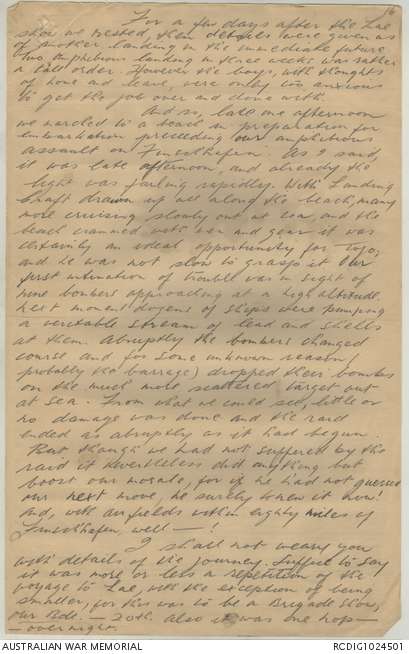 16
For a few days after the Lae
show we rested, then details were given us
of another landing in the immediate future
Two amphibious landing in three weeks was rather
a tall order. However the boys, with thoughts
of home and leave, were only too anxious
to get the job over and done with.
And so, late one afternoon
we marched to a beach in preparation for
embarkation preceding our amphibious
assault on Finschhafen. As I said,
it was late afternoon, and already the
light was failing rapidly. With Landing
Craft drawn up all along the beach, many
more cruising slowly out at sea, and the
beach crammed with men and gear it was
certainly an ideal opportunity for Tojo,
and he was not slow to grasp it. Our
first intimation of trouble was in sight of
nine bombers approaching at a high altitude.
Next moment dozens of ships were pumping
a veritable stream of lead and shells
at them. Abruptly the bombers changed
course and for some unknown reason (
probably the barrage) dropped their bombs
on the much more scattered target out
at sea. From what we could see, little or
no damage was done and the raid
ended as abruptly as it had begun.
But though we had not suffered by the
raid it nevertheless did anything but
boost our morale, for if he had not guessed
our next move, he surely knew it now!
And, with airfields within eighty miles of
Finschhafen, well — !
I shall not weary you
with details of the journey. Suffice to say
it was more or less a repetition of the
voyage to Lae, with the exception of being
smaller, for this was to be a Brigade Show,
our Bde. — 20th. Also it was one hop —
— overnight.
AUSTRALIAN WAR MEMORIAL
RCDIG1024501